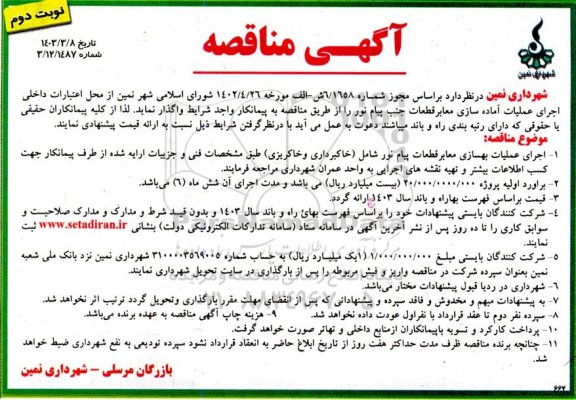 نوبت دوم
آگهـی مناقصه
تاریخ ۱۴۰۳/۳/۸
شماره ۳/۱۲/۱۴۸۷
شهرداری نمین
شهرداری نمین درنظردارد براساس مجوز شماره ۶/۱۶۵۸/ش-الف مورخه ۱۴۰۲/۴/۲۶ شورای اسلامی شهر نمین از محل اعتبارات داخلی
اجرای عملیات آماده سازی معابرقطعات جنب پیام نور را از طریق مناقصه به پیمانکار واجد شرایط واگذار نماید. لذا از کلیه پیمانکاران حقیقی
یا حقوقی که دارای رتبه بندی راه و باند میباشند دعوت به عمل می آید با درنظرگرفتن شرایط ذیل نسبت به ارائه قیمت پیشنهادی نمایند.
موضوع مناقصه:
۱- اجرای عملیات بهسازی معابرقطعات پیام نور شامل (خاکبرداری وخاکریزی) طبق مشخصات فنی و جزییات ارایه شده از طرف پیمانکار جهت
کسب اطلاعات بیشتر و تهیه نقشه های اجرایی به واحد عمران شهرداری مراجعه فرمایند.
۲- برآورد اولیه پروژه ۲۰/۰۰۰/۰۰۰/۰۰۰ (بیست میلیارد ریال) می باشد و مدت اجرای آن شش ماه (۶) می‌باشد.
۳- قیمت براساس فهرست بهاراه و باند سال ۱۴۰۳ ارائه گردد.
۴- شرکت کنندگان بایستی پیشنهادات خود را براساس فهرست بهای راه و باند سال ۱۴۰۳ و بدون قید شرط و مدارک و مدارک صلاحیت و
سوابق کاری را تا ده روز پس از نشر آخرین آگهی در سامانه ستاد (سامانه تدارکات الکترونیکی دولت) بنشانی www.setadiran.ir ثبت
نمایند.
۵- شرکت کنندگان بایستی مبلغ ۱/۰۰۰/۰۰۰/۰۰۰ (۱یک میلیارد ریال) به حساب شماره ۳۱۰۰۰۰۳۵۶۹۰۰۵ شهرداری نمین نزد بانک ملی شعبه
نمین بعنوان سپرده شرکت در مناقصه واریز و فیش مربوطه را پس از بارگذاری در سایت تحویل شهرداری نمایند.
۶- شهرداری در ردیا قبول پیشنهادات مختار می‌باشد.
۷- به پیشنهادات مبهم و مخدوش و فاقد سپرده و پیشنهاداتی که پس از انقضای مهلت مقرر بارگذاری وتحویل گردد ترتیب اثر نخواهد شد.
۸- سپرده نفر دوم تا عقد قرارداد با نفراول عودت داده نخواهد شد. ۹- هزینه چاپ آگهی مناقصه به عهده برنده می‌باشد.
۱۰- پرداخت کارکرد و تسویه باپیمانکاران ازمنابع داخلی و تهاتر صورت خواهد گرفت.
۱۱- چنانچه برنده مناقصه ظرف مدت حداکثر هفت روز از تاریخ ابلاغ حاضر به انعقاد قرارداد نشود سپرده تودیعی به نفع شهرداری ضبط خواهد
شد.
بازرگان مرسلی – شهرداری نمین
۶۶۲